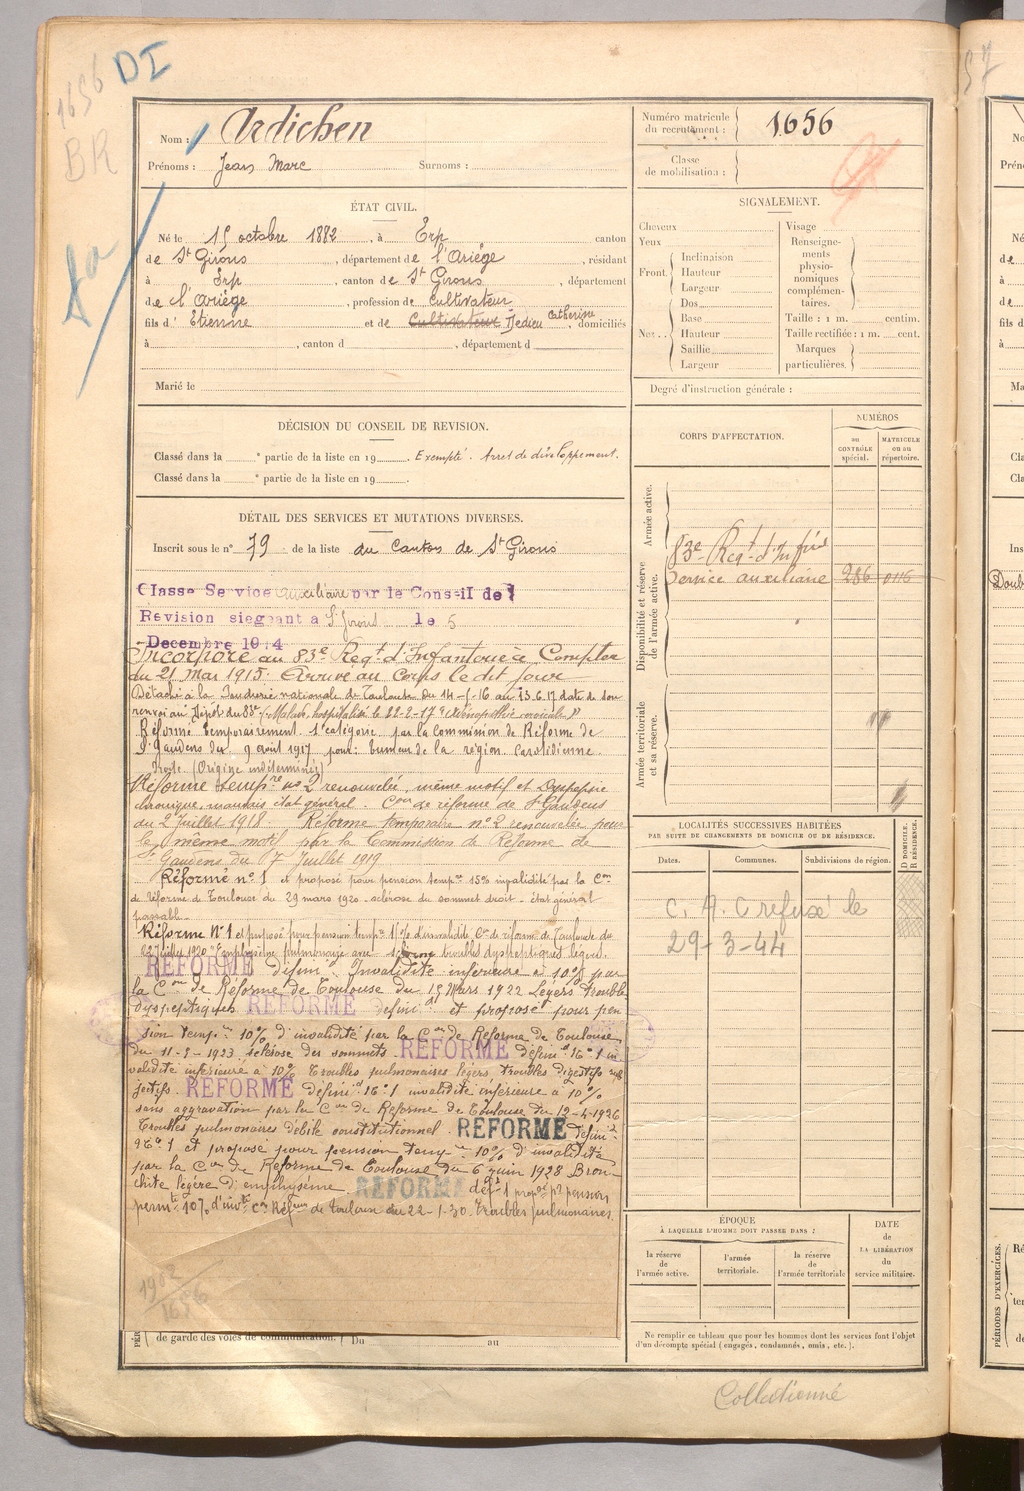 1656
DI
BR
Nom : Ardichen
Prénoms : Jean Marc Surnoms :
Numéro matricule du recrutement : 1656
Classe de mobilisation :
ÉTAT CIVIL.
Né le 15 octobre 1882, à Erp canton
de St Girons, département de l'Ariège, résidant
à Erp, canton de St Girons, département
de l'Ariège, profession de cultivateur
fils d' Etienne et de Cultivateur Dedieu Catherine, domiciliés
à , canton d , département d
Marié le
SIGNALEMENT.
Cheveux
Yeux
Front. Inclinaison
Hauteur
Largeur
Nez.. Dos
Base
Hauteur
Saillie
Largeur
Visage
Renseignements physionomiques complémentaires.
Taille : 1 m. centim.
Taille rectifiée : 1 m. cent.
Marques particulières.
Degré d'instruction générale :
DÉCISION DU CONSEIL DE REVISION.
Classé dans la e partie de la liste en 19 Exempté. Arret de développement.
Classé dans la e partie de la liste en 19 .
DÉTAIL DES SERVICES ET MUTATIONS DIVERSES.
Inscrit sous le n° 79 de la liste du Canton de St Girons
Classe Service auxiliaire par le Conseil de
Revision siegeant a St Girons le 5
Decembre 1914
Incorporé au 83e Regt d'Infanterie à Compter
du 21 Mai 1915. Arrivé au Corps le dit jour
Détaché à la Poudrerie nationale de Toulouse du 14-1-16 au 23.6.17 date de son
renvoi au Dépôt du 83e. Malade, hospitalisé le 22-2-17
Réformé temporairement 1e catégorie par la Commission de Réforme de
St Gaudens du 9 août 1917 pour : tumeur de la région Carotidienne
droite. (Origine indéterminée)
Réforme tempre n° 2 renouvelée, même motif et Dyspepsie
chronique, mauvais état général. Con de réforme de St Gaudens
du 2 Juillet 1918. Réforme temporaire n° 2 renouvelée pour
le même motif par la Commission de Réforme de
St Gaudens du 7 Juillet 1919
Réformé n° 1 et proposé pour pension tempre 15% invalidité par la Con
de réforme de Toulouse du 29 mars 1920. sclérose du sommet droit - état général
passable.
Réforme N° 1 et proposé pour pension tempre d'invalidité Con de réforme de Toulouse du
22 Juillet 1920 "Emphysème pulmonaire avec sclérose troubles dyspeptiques légers.
REFORME défini Invalidité inférieure à 10% par
la Con de Réforme de Toulouse du 15 Mars 1922 Légers troubles
dyspeptiques REFORME définit et proposé pour pen
sion temp. 10% d'invalidité par la Con de Réforme de Toulouse
du 11-2-1923 sclérose des sommets. REFORME définit n° 1 in
validité inférieure à 10% Troubles pulmonaires légers troubles digestifs sub
jectifs. REFORME définit n° 1 invalidité inférieure à 10%
sans aggravation par la Con de Réforme de Toulouse du 12-4-1926
Troubles pulmonaires débile constitutionnel. REFORME définit
n° 1 et proposé pour pension temp. 10% d'invalidité
par la Con de Réforme de Toulouse du 6 juin 1928 Bron
chite légère d'emphysème. REFORME déf 1 propé pr pension
permte 10% d'invté Con Réfme de Toulouse du 22-1-30. Troubles pulmonaires.
1902
1656
de garde des voies de communication. Du au
CORPS D'AFFECTATION.
NUMÉROS
au CONTRÔLE spécial.
MATRICULE ou au répertoire.
Armée active.
Disponibilité et réserve de l'armée active.
83e Regt d'Infrie
Service auxiliaire 286 0116
Armée territoriale et sa réserve.
LOCALITÉS SUCCESSIVES HABITÉES
PAR SUITE DE CHANGEMENTS DE DOMICILE OU DE RÉSIDENCE.
Dates. Communes. Subdivisions de région.
D DOMICILE. R RÉSIDENCE.
C. A. C refusé le
29-3-44
ÉPOQUE
À LAQUELLE L'HOMME DOIT PASSER DANS :
la réserve de l'armée active.
l'armée territoriale.
la réserve de l'armée territoriale
DATE de LA LIBÉRATION du service militaire.
Ne remplir ce tableau que pour les hommes dont les services font l'objet
d'un décompte spécial (engagés, condamnés, omis, etc.).
Collationné
PÉRIODES D'EXERCICES.